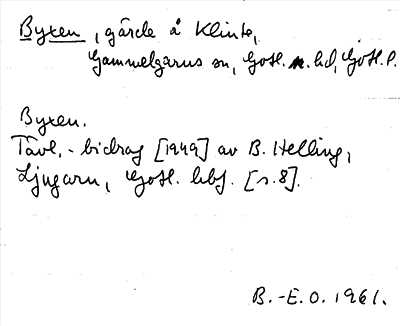 Byxen, gärde å Klinte,
Gammelgarns sn, Gotl. n. hd, Gotl. l.
Byxen.
Tävl.-bidrag [1949] av B. Helling,
Ljugarn, Gotl. hbf. [s.8].
B.-E.O. 1961.